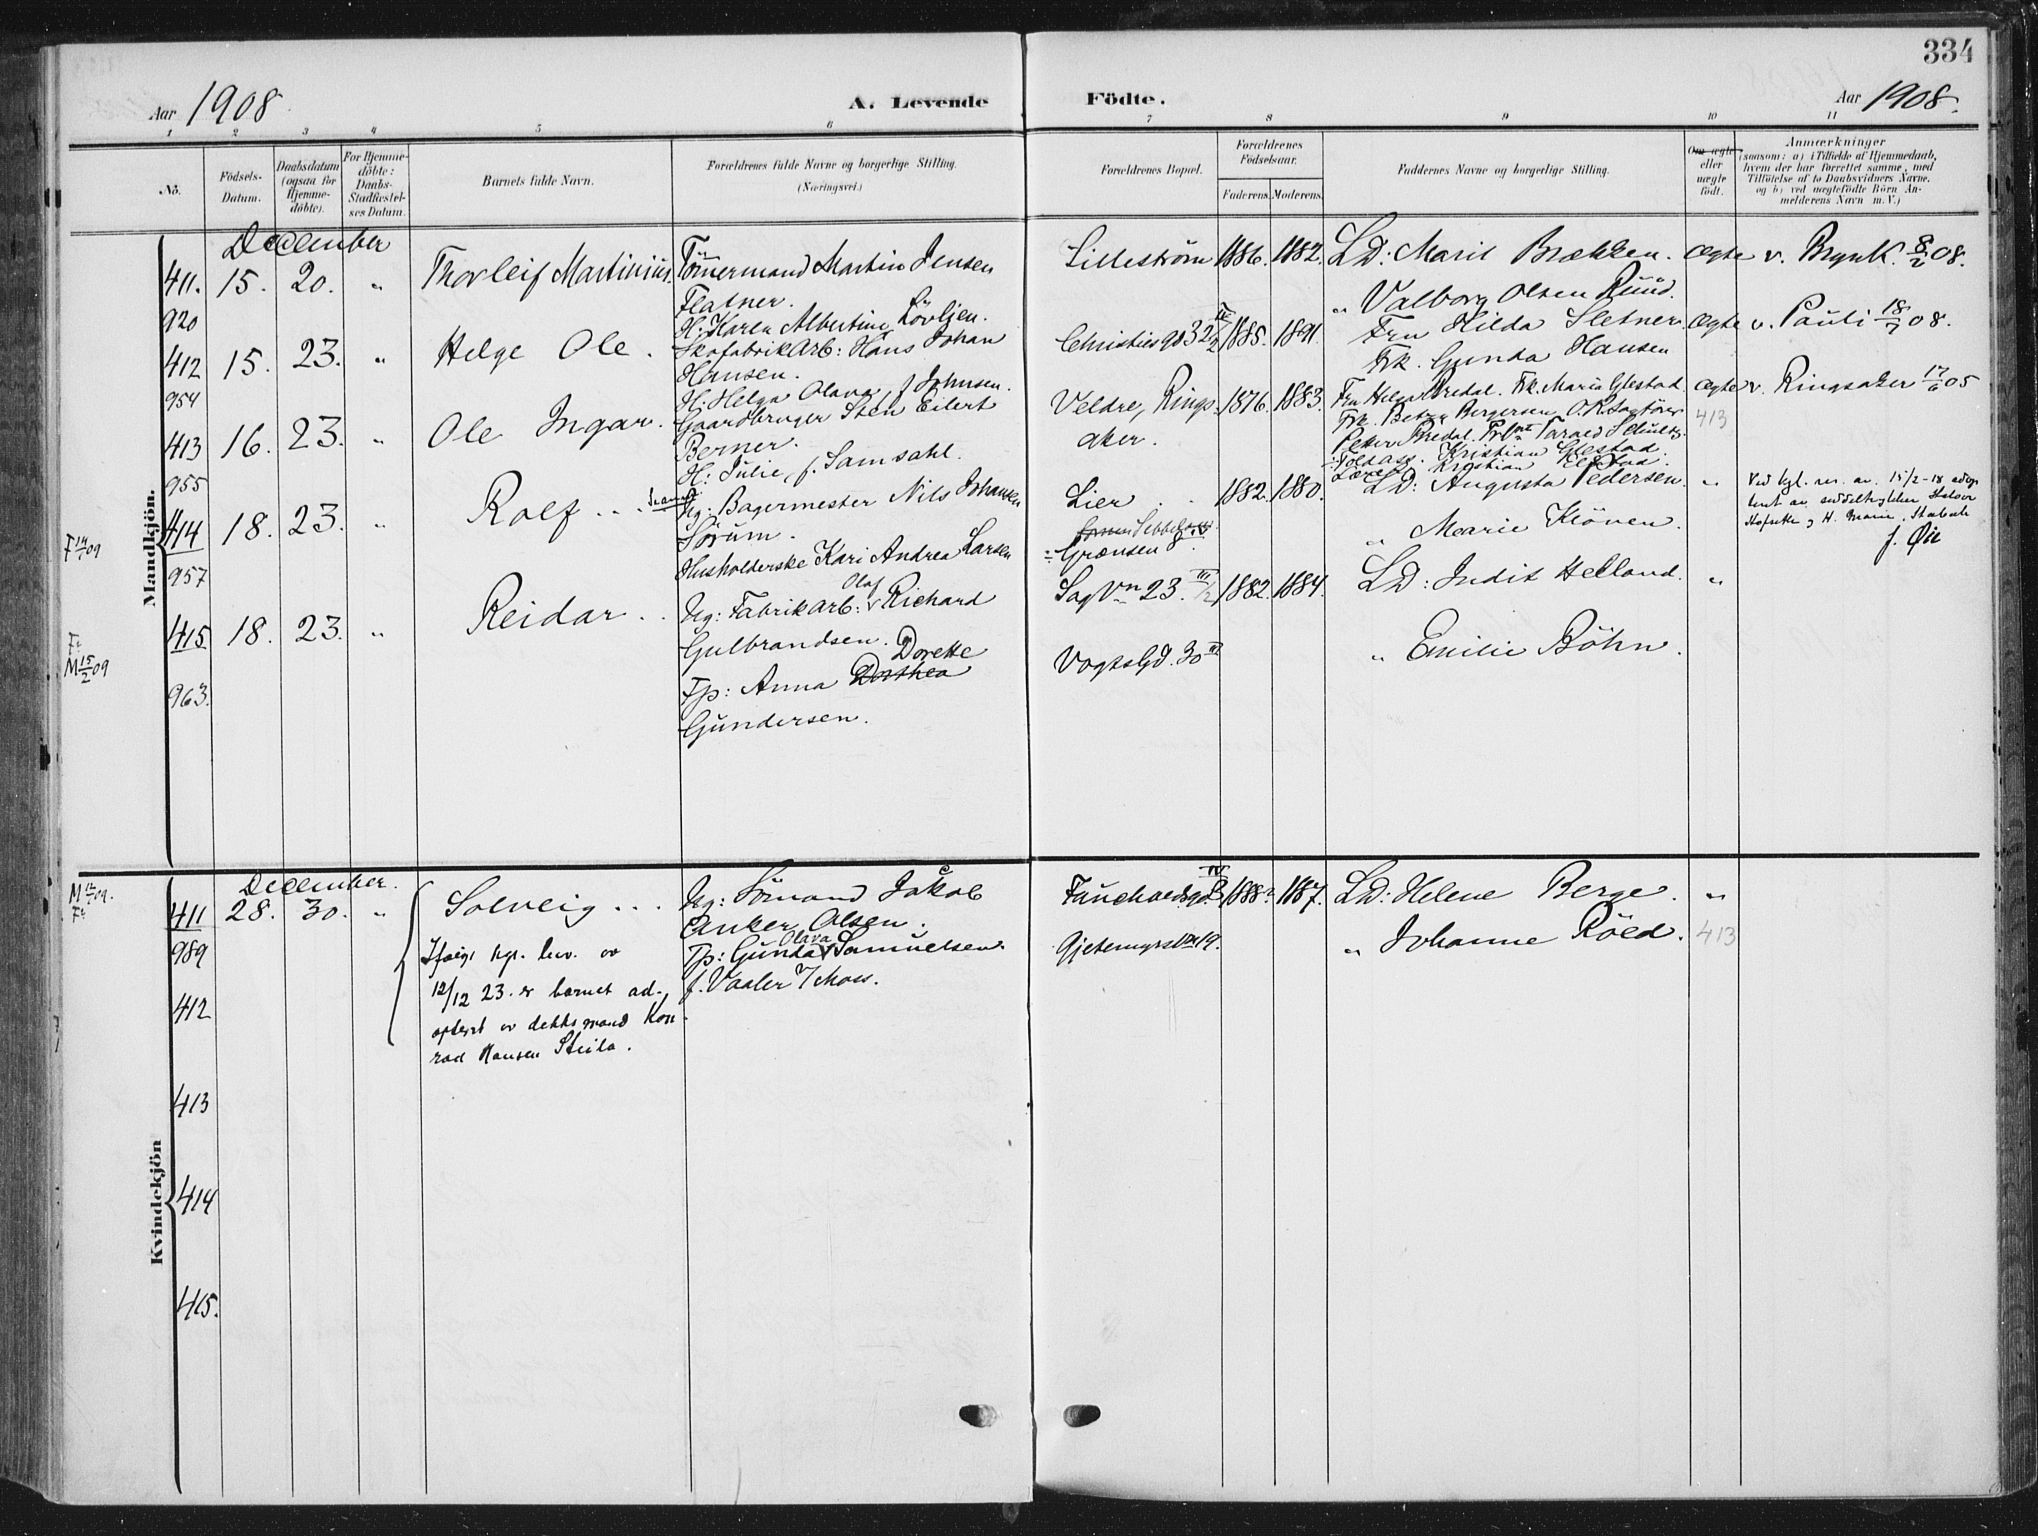 334
Aar 1908.
A. Levende
Födte.
Aar 1908.
1 2 3 4 5 6 7 8 9 10 11
No.
Födsels-
Datum.
Daabsdatum
(ogsaa for
Hjemme-
döbte).
For Hjemme-
döbte:
Daabs-
Stadfæstel-
ses Datum.
Barnets fulde Navn.
Forældrenes fulde Navne og borgerlige Stilling.
(Næringsvei.)
Forældrenes Bopæl.
Forældrenes
Födselsaar.
Faderens.
Moderens.
Faddernes Navne og borgerlige Stilling.
Om ægte
eller
uægte
födt.
Anmærkninger
(saasom: a) i Tilfælde af Hjemmedaab,
hvem der har forrettet samme, med
Tilföielse af to Daabsvidners Navne,
og b) ved uægtefödte Börn An-
melderens Navn m. V.)
Mandkjön.
December
411. 15. 20. „ Thorleif Martinius.
920
Tömmermand Martin Jensen
Flatner.
H: Karen Albertine Lövljen.
Lilleström 1886. 1882.
LD: Marit Brækken.
„ Valborg Olsen Ruud.
ægte v. Brynk. 8/2 08.
412 15. 23. „ Helge Ole.
954
Skofabrikarb: Hans Johan
Hansen.
H: Helga Olava, f. Johnsen.
Christies gd 32 1885. 1891.
Fru Hilda Sletner
Frk. Gunda Hansen
ægte v. Pauli 18/7 08.
413 16. 23. „ Ole Ingar.
955
Gaardbruger Sten Eilert
Berner.
H: Julie, f. Samsahl.
Veldre, Rings-
aker.
1876. 1883.
Fru Helga Bredal. Frk. Maria Glestad.
Frk. Betzy Bergersen
Peder Bredal.
Kristian Glestad.
ægte v. Ringsaker 17/6 05
413
414 18. 23. „ Rolf ...
957
F 14/1 09
Ug: Bagermester Nils Johansen
Sörum.
Husholderske Kari Andrea Larsen
Lier
Grænsen 8.
1882. 1880.
LD: Augusta Pedersen.
„ Marie Klöven.
„
Ved kgl. res. av. 15/2-18 adop
tert av
H. Marie,
f. Øie
415 18. 23. „ Reidar ..
963.
F:
M 15/2 09
Ug: Fabrikarb: Olaf Richard
Gulbrandsen.
Fp: Anna Dorthea Dorette
Gundersen.
Sag Vn 23. III 1/2
Vogtsgd. 30 III
1882. 1884.
LD: Judit Helland.
„ Emilie Böhn.
„
Kvindekjön
December.
M 12/1 09.
F:
411 28. 30. „ Solveig ...
989
Ug: Sömand Jakob
Anker Olsen.
Fp: Gunda Olava Samuelsen.
f. Vaaler i/Moss.
Fauchaldsgd. 8 IV
Gjetemyrsvn 19.
1888. 1887.
LD: Helene Berge.
„ Johanne Röed.
„
413
Ifølge kgl. bev. av
12/12 23. er barnet ad-
opteret av dekksmand Kon-
rad Hansen Steila.
412
413
414
415.